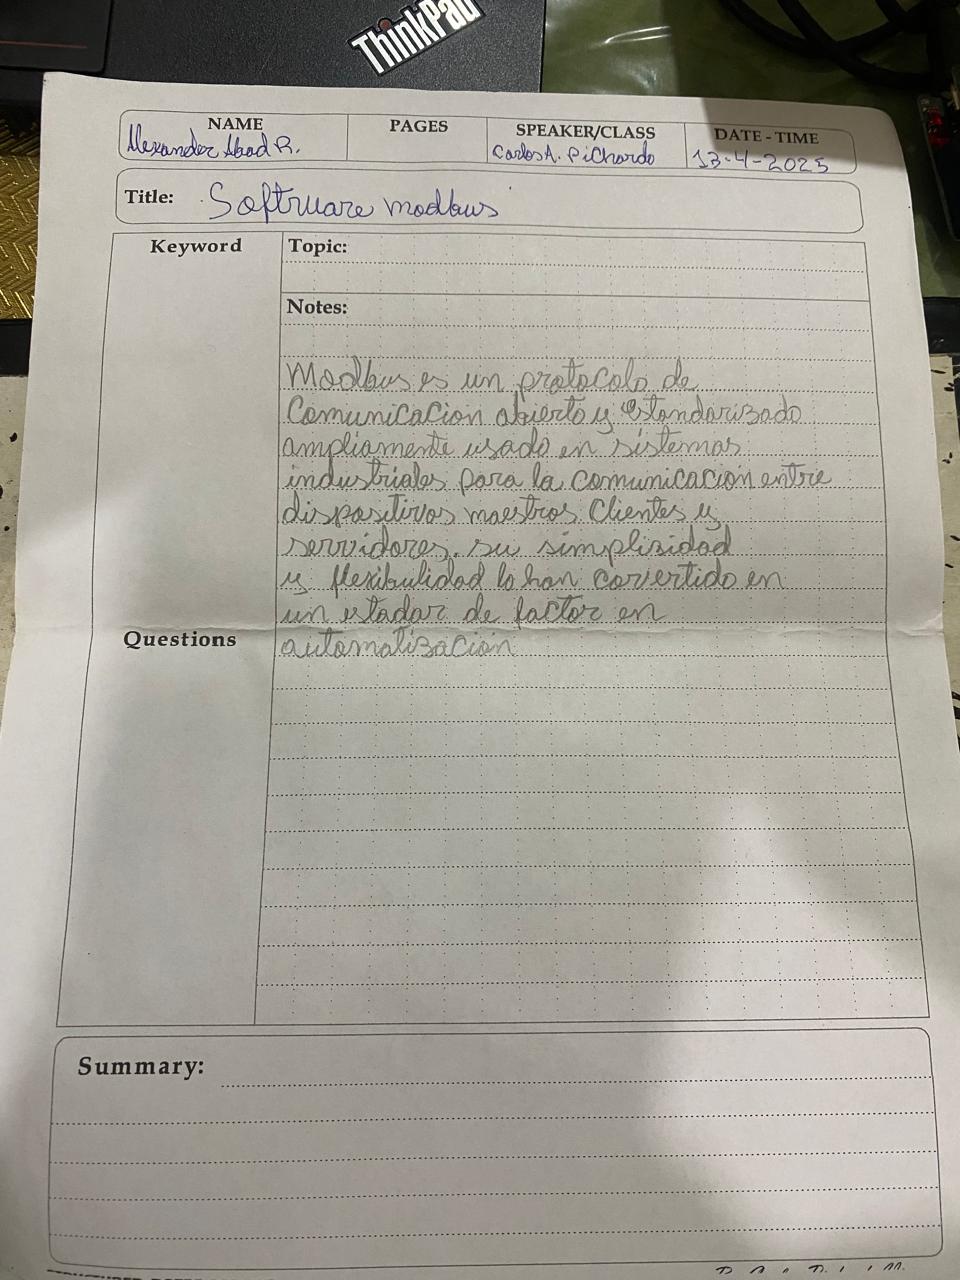 ThinkPad
NAME PAGES SPEAKER/CLASS DATE - TIME
Alexander Abad R. Carlos A. Pichardo 13-4-2025
Title: Softruare modbus
Keyword Topic:
Notes:
Modbus es un protocolo de
Comunicacion abierto y estandarizado
ampliamente usado en sistemas
industriales para la comunicacion entre
dispositivos maestros Clientes y
servidores. su simplisidad
y flexibulidad lo han covertido en
un estadar de factor en
Questions automatizacion
Summary: